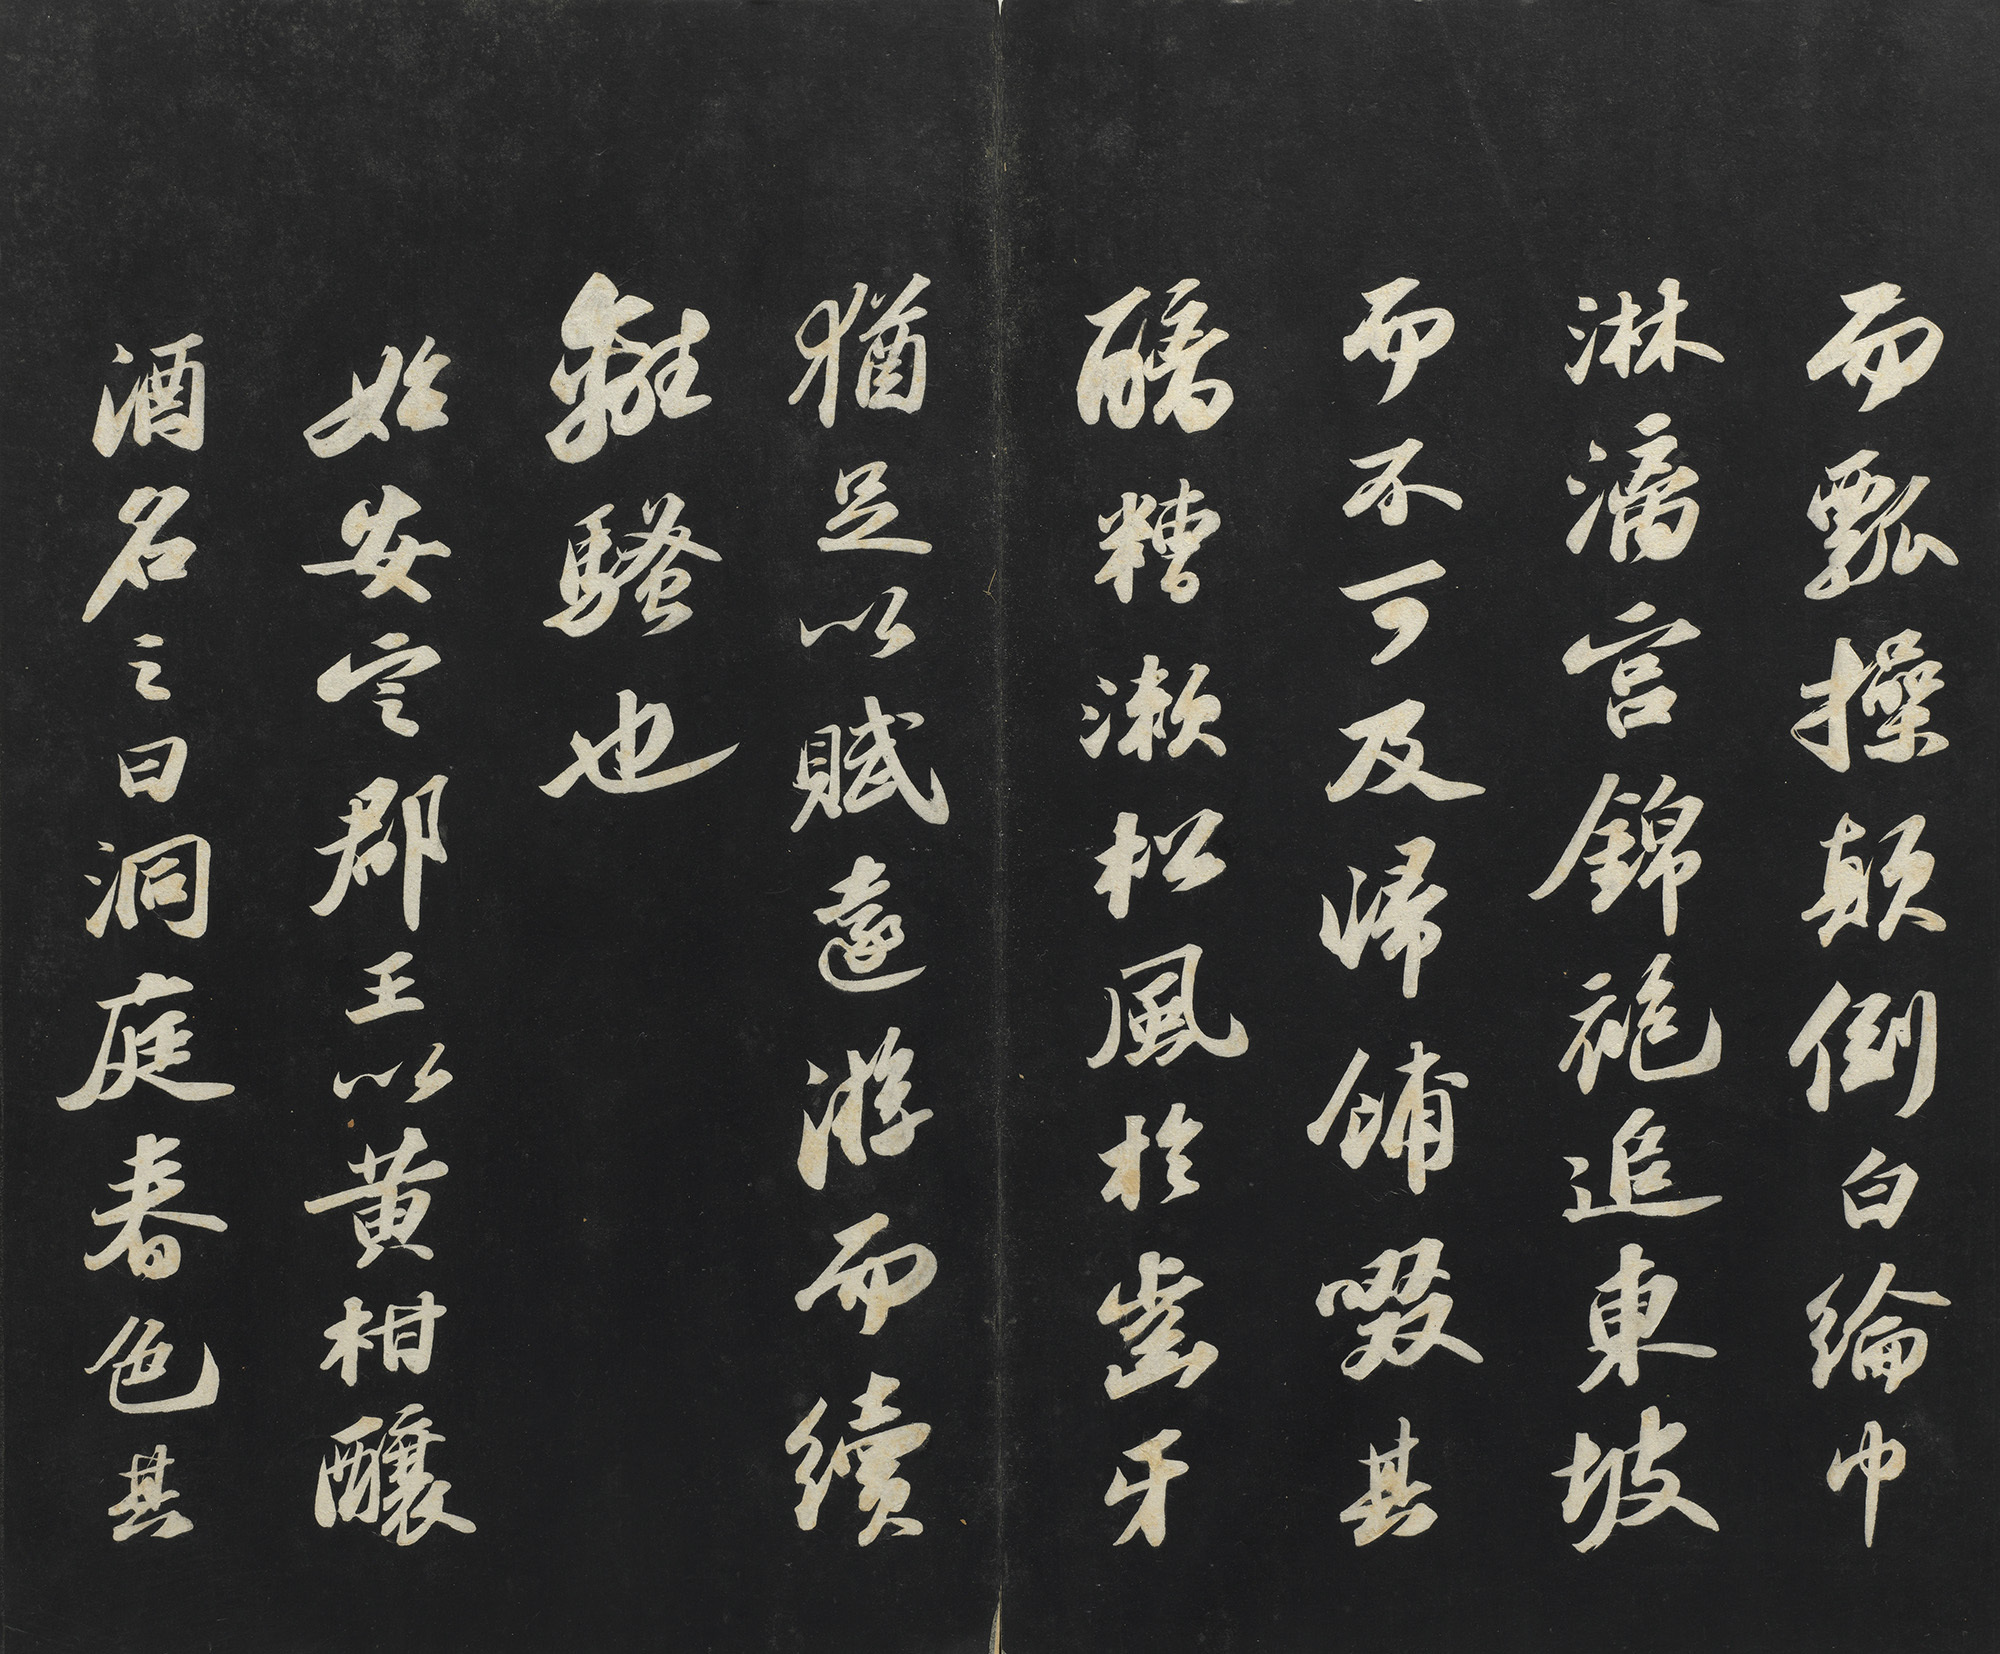 而瓢操顛倒白綸巾
淋漓宫錦袍追東坡
而不可及歸餔啜其
醨糟漱松風於齒牙
猶足以賦遠游而續
離騷也
始安定郡王以黄柑釀
酒名之曰洞庭春色其